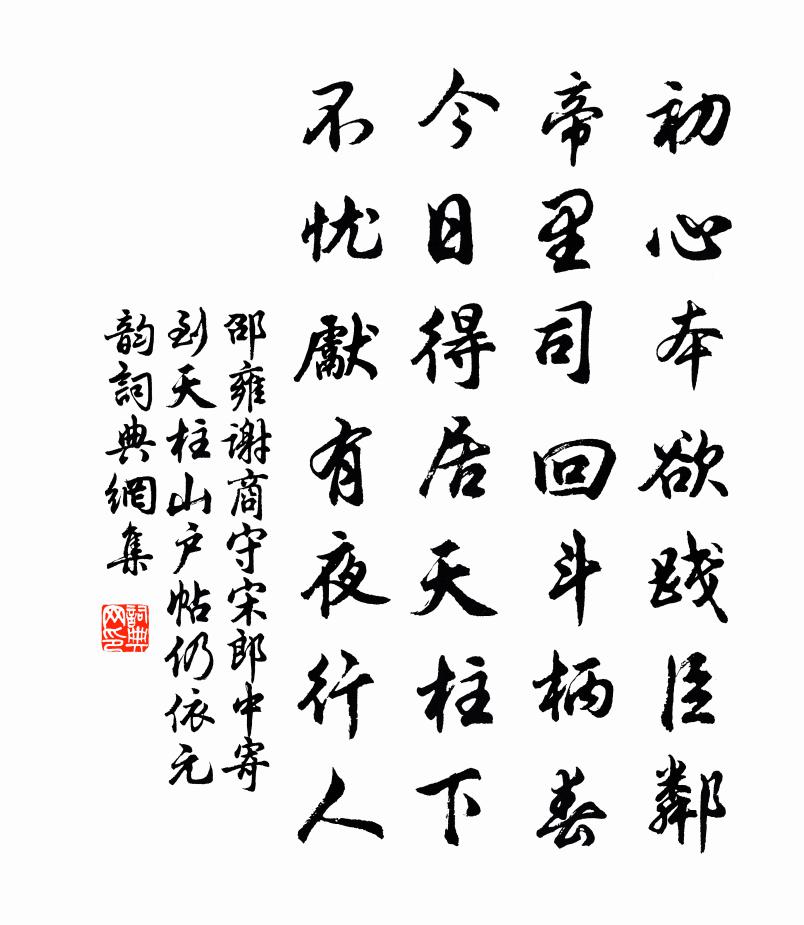 初心本欲践臣鄰
帝里司回斗柄春
今日得居天柱下
不忧獻有夜行人
邵雍謝商守宋郎中寄
到天柱山户帖仍依元
韵詞典網集
詞典网印